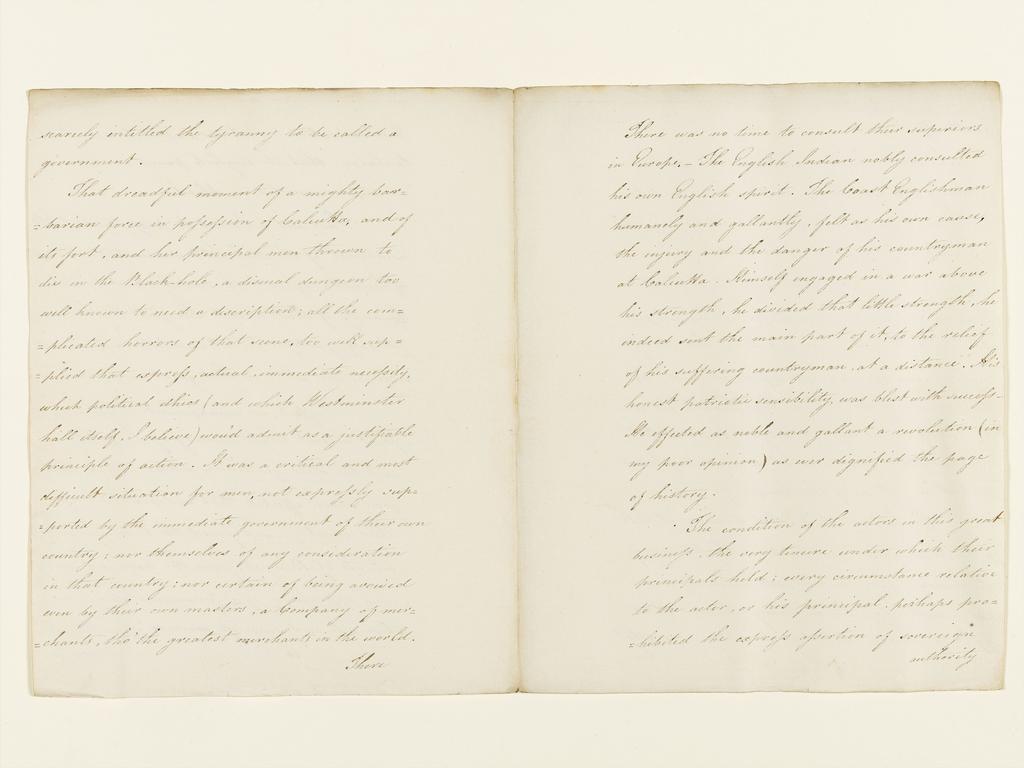 scarcely intitled the tyranny to be called a
government.
That dreadful moment of a mighty bar=
=barian force in possession of Calcutta, and of
its fort, and her principal men thrown to
die in the Black-hole, a dismal dungeon too
well known to need a description; all the com=
=plicated horrors of that scene, too well sup=
=plied that express, actual, immediate necessity,
which political ethics (and which Westminster
hall itself, I believe) wou'd admit as a justifiable
principle of action. It was a critical and most
difficult situation for men, not expressly sup=
=ported by the immediate government of their own
country; nor themselves of any consideration
in that country; nor certain of being avowed
even by their own masters, a Company of mer=
=chants, tho' the greatest merchants in the world.
There
There was no time to consult their superiors
in Europe. – The English Indian nobly consulted
his own English spirit. The Coast Englishman
humanely and gallantly, felt as his own cause,
the injury and the danger of his countryman
at Calcutta. Himself engaged in a war above
his strength, he divided that little strength, he
indeed sent the main part of it, to the relief
of his suffering countryman, at a distance. His
honest patriotic sensibility, was blest with success–
He effected as noble and gallant a revolution (in
my poor opinion) as ever dignified the page
of history.
The condition of the actors in this great
business, the very tenure under which their
principals held; every circumstance relative
to the actor, or his principal, perhaps pro=
=hibited the express assertion of sovereign
authority